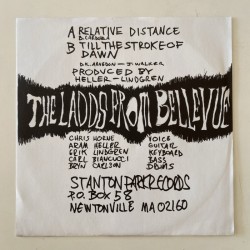 A RELATIVE DISTANCE
B TILL THE STROKE OF
DAWN
J. WALKER
PRODUCED BY
HELLER-LINDGREN
THE LADDS FROM BELLEVUE
CHRIS HORNE VOICE
ARAM HELLER GUITAR
ERIK LINDGREN KEYBOARD
CARL BIANCUCCI BASS
BRYN CARLSON DRUMS
STANTON PARK RECORDS
P.O. BOX 58
NEWTONVILLE MA 02160